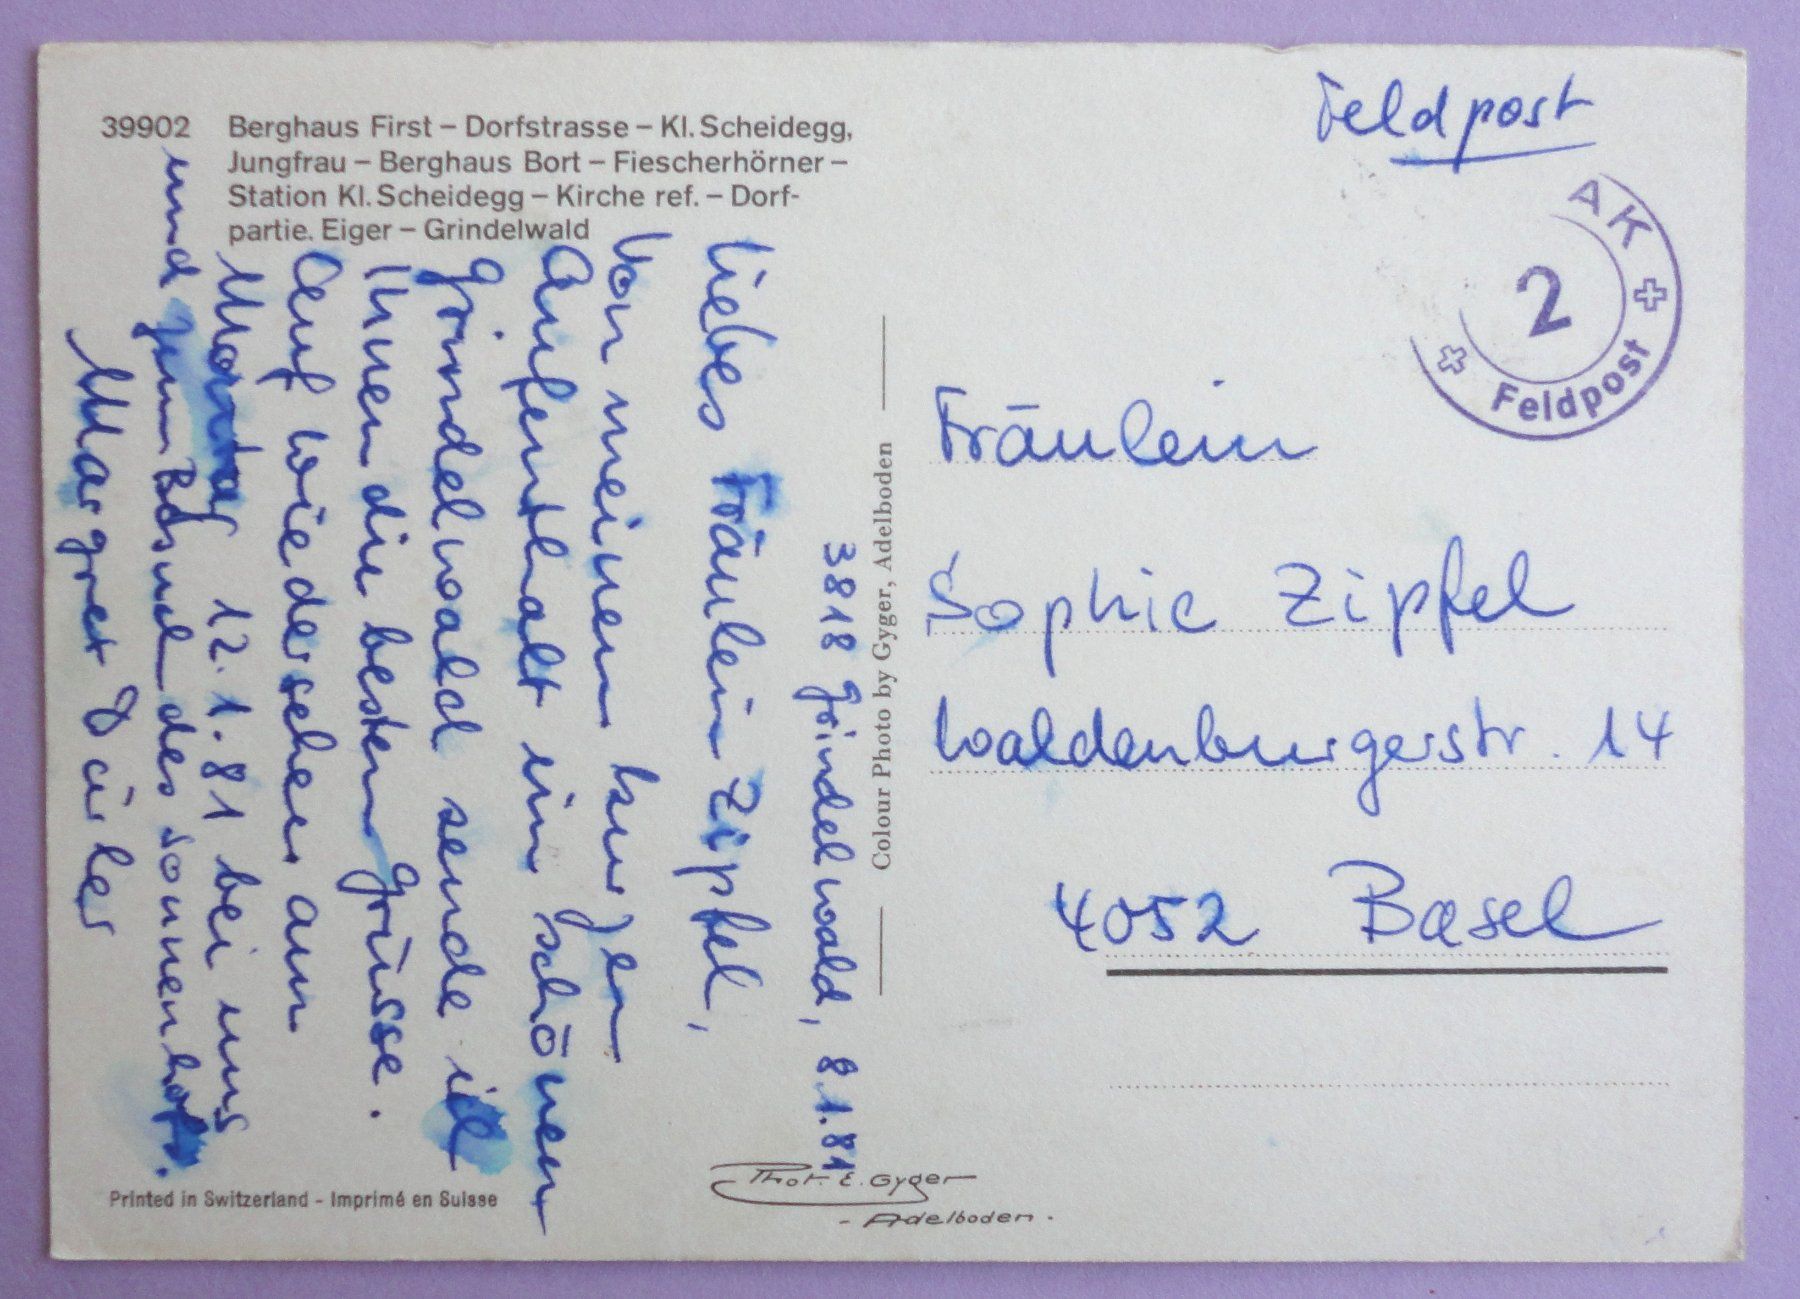 39902 Berghaus First – Dorfstrasse – Kl. Scheidegg,
Jungfrau – Berghaus Bort – Fiescherhörner –
Station Kl. Scheidegg – Kirche ref. – Dorf-
partie. Eiger – Grindelwald
3818 Grindelwald, 8.1.81
Liebes Fräulein Zipfel,
Von meinem kurzen
Aufenthalt im schönen
Grindelwald sende ich
Ihnen die besten Grüsse.
Auf Wiedersehen am
Montag 12.1.81 bei uns
und zum Bösuel des Sonnenhofs.
Margret Dürler
Colour Photo by Gyger, Adelboden
Feldpost
AK
2
Feldpost
Fräulein
Sophie Zipfel
Waldenburgerstr. 14
4052 Basel
Printed in Switzerland - Imprimé en Suisse
Phot. E. Gyger
- Adelboden -